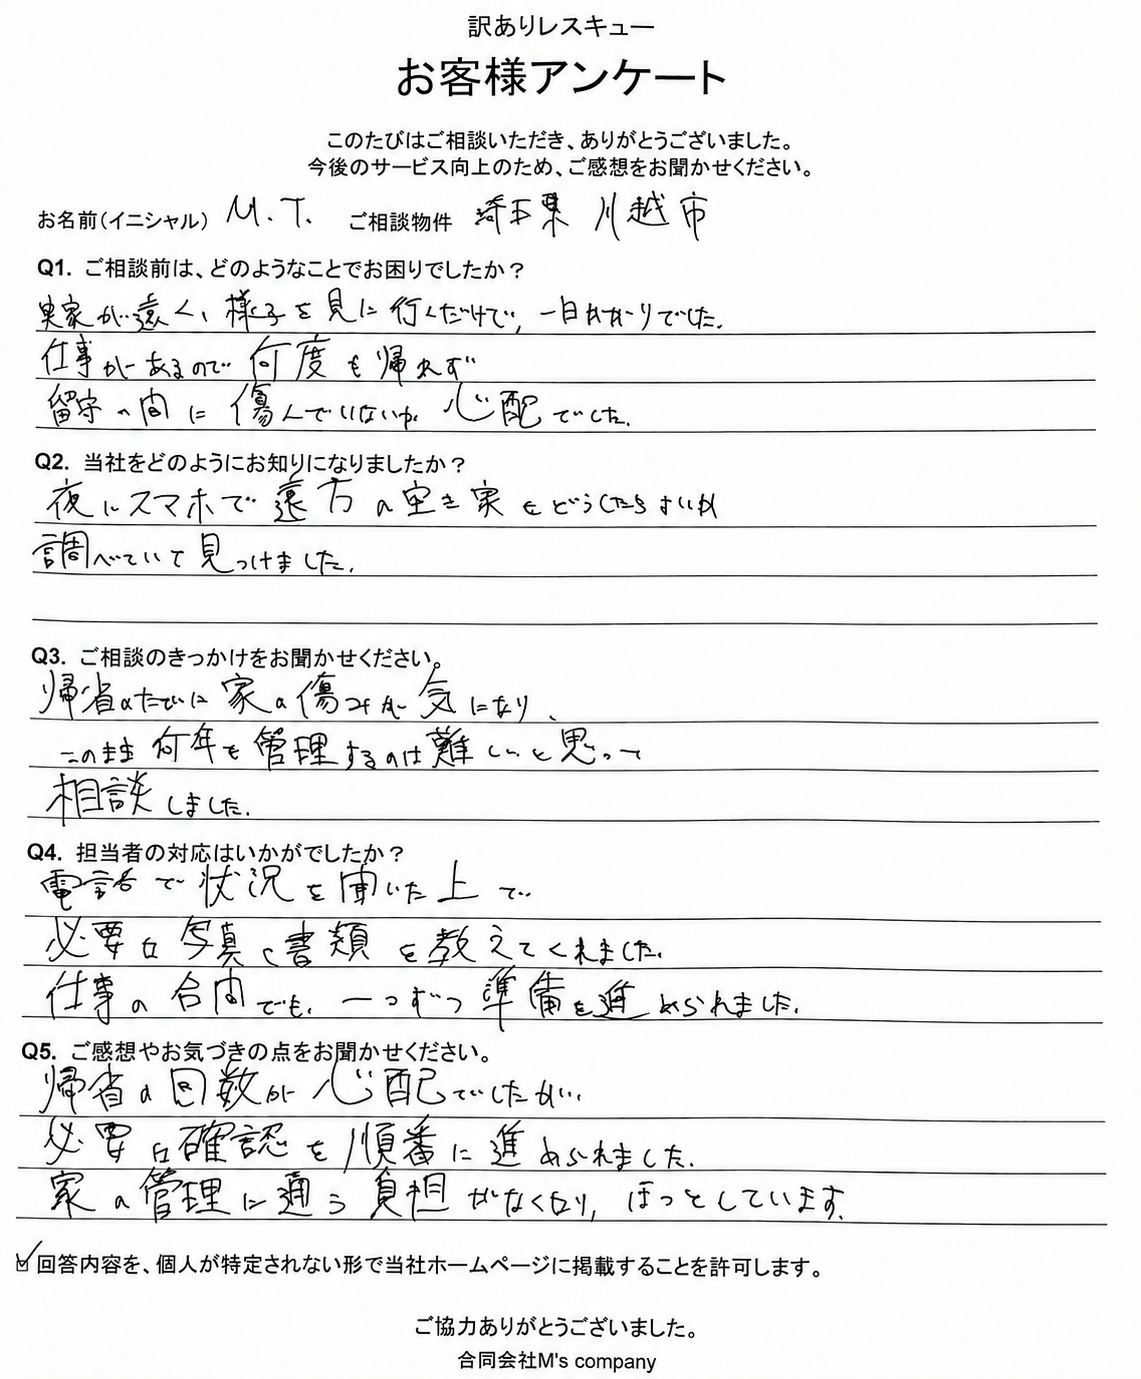 訳ありレスキュー
お客様アンケート
このたびはご相談いただき、ありがとうございました。
今後のサービス向上のため、ご感想をお聞かせください。
お名前(イニシャル) M.T. ご相談物件 埼玉県 川越市
Q1. ご相談前は、どのようなことでお困りでしたか？
実家が遠く、様子を見に行くだけで、一日がかりでした。
仕事があるので何度も帰れず
留守の間に傷んでいないか心配でした。
Q2. 当社をどのようにお知りになりましたか？
夜にスマホで遠方の空き家をどうしたらよいか
調べていて見つけました。
Q3. ご相談のきっかけをお聞かせください。
帰省のたびに家の傷みが気になり、
このまま何年も管理するのは難しいと思って
相談しました。
Q4. 担当者の対応はいかがでしたか？
電話で状況を聞いた上で
必要な写真と書類を教えてくれました。
仕事の合間でも、一つずつ準備を進められました。
Q5. ご感想やお気づきの点をお聞かせください。
帰省の回数が心配でしたが、
必要な確認を順番に進められました。
家の管理に通う負担がなくなり、ほっとしています。
回答内容を、個人が特定されない形で当社ホームページに掲載することを許可します。
ご協力ありがとうございました。
合同会社M's company